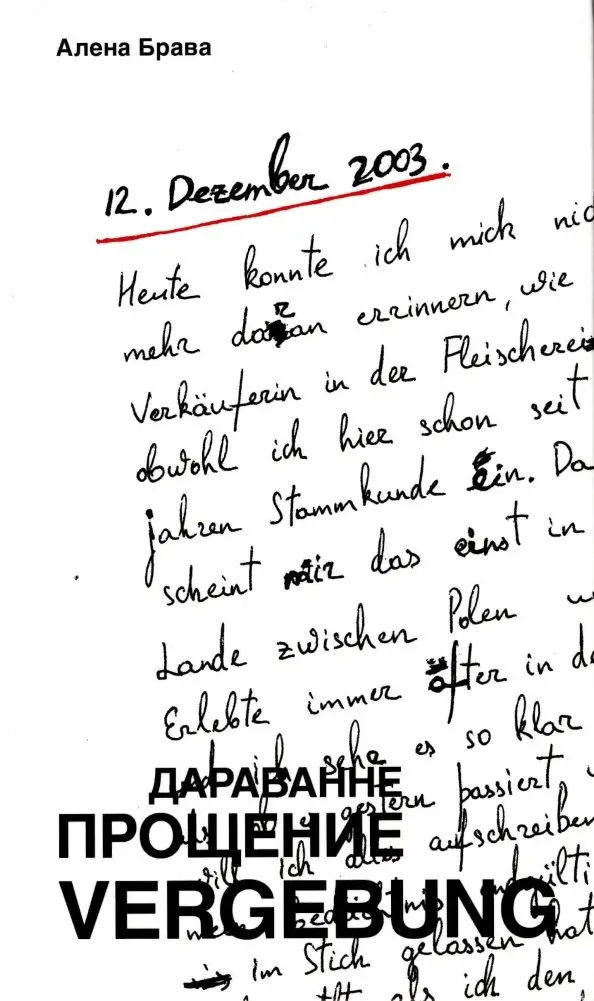 Алена Брава
12. Dezember 2003.
Heute konnte ich mick nic
mehr daran errinnern, wie
Verkäuferin in der Fleischerei
obwohl ich hier schon seit
jahren Stammkunde ein. Da
scheint mir das einst in
Lande zwischen Polen
Erlebte immer öfter in de
ich sehe es so klar
ДАРАВАННЕ
gestern passiert,
ПРОЩЕНИЕ
will ich aufschreiben
VERGEBUNG
im Stich gelassen hat
als ich den